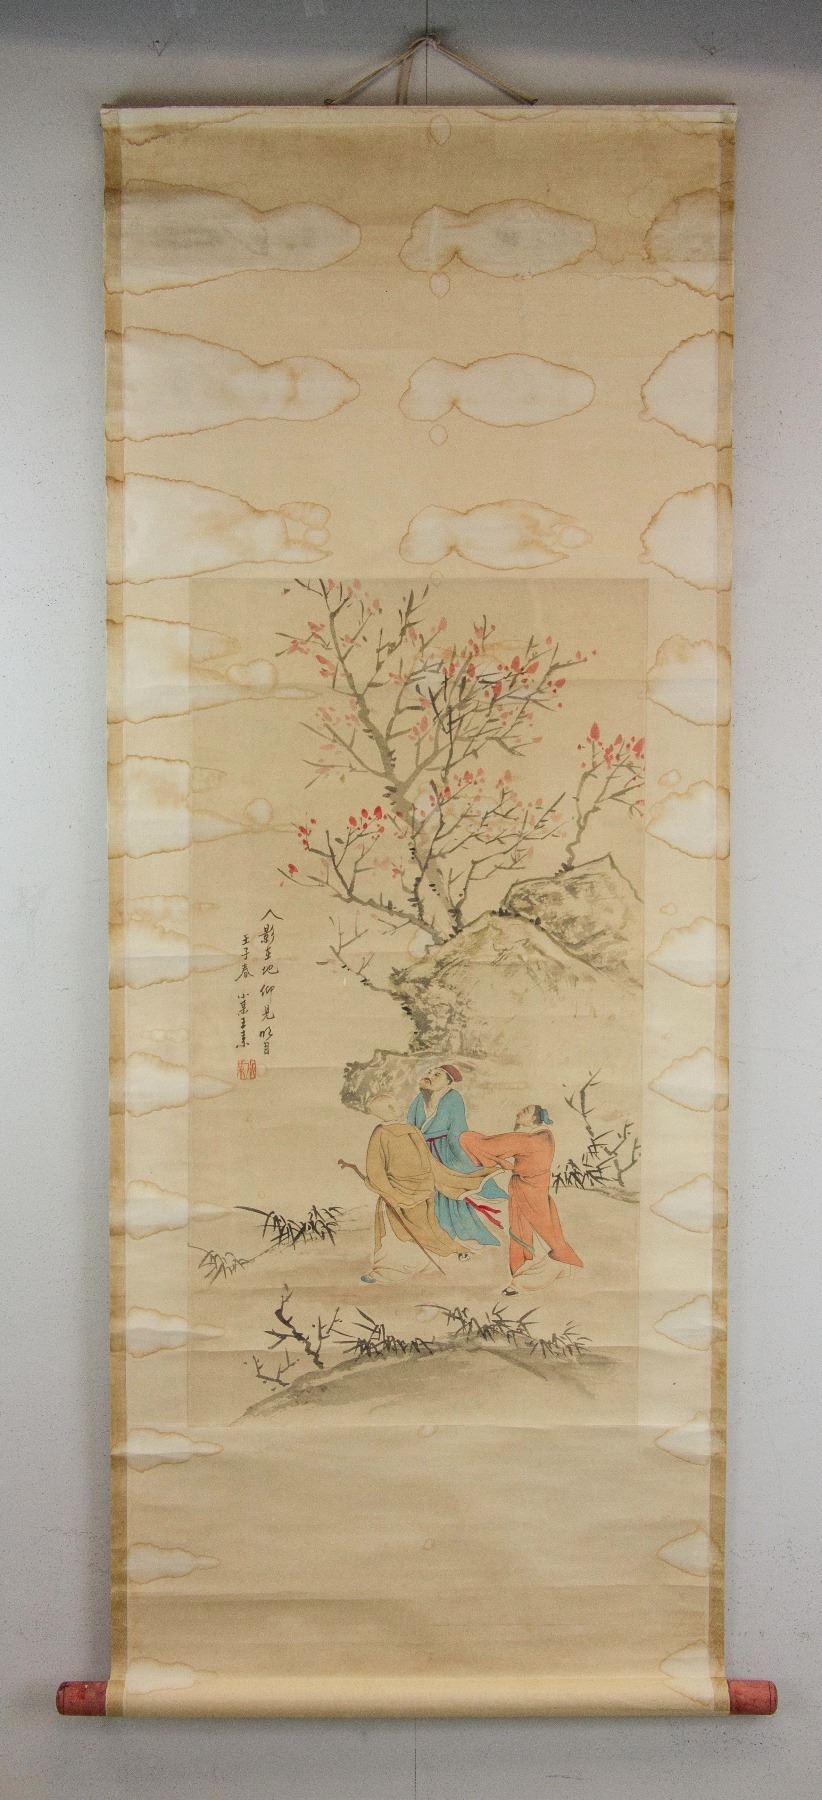 人影在地仰見明月
壬子春 小某王素